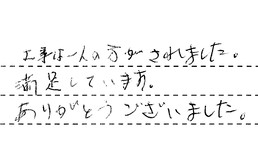 工事は一人の方がされました。
満足しています。
ありがとうございました。